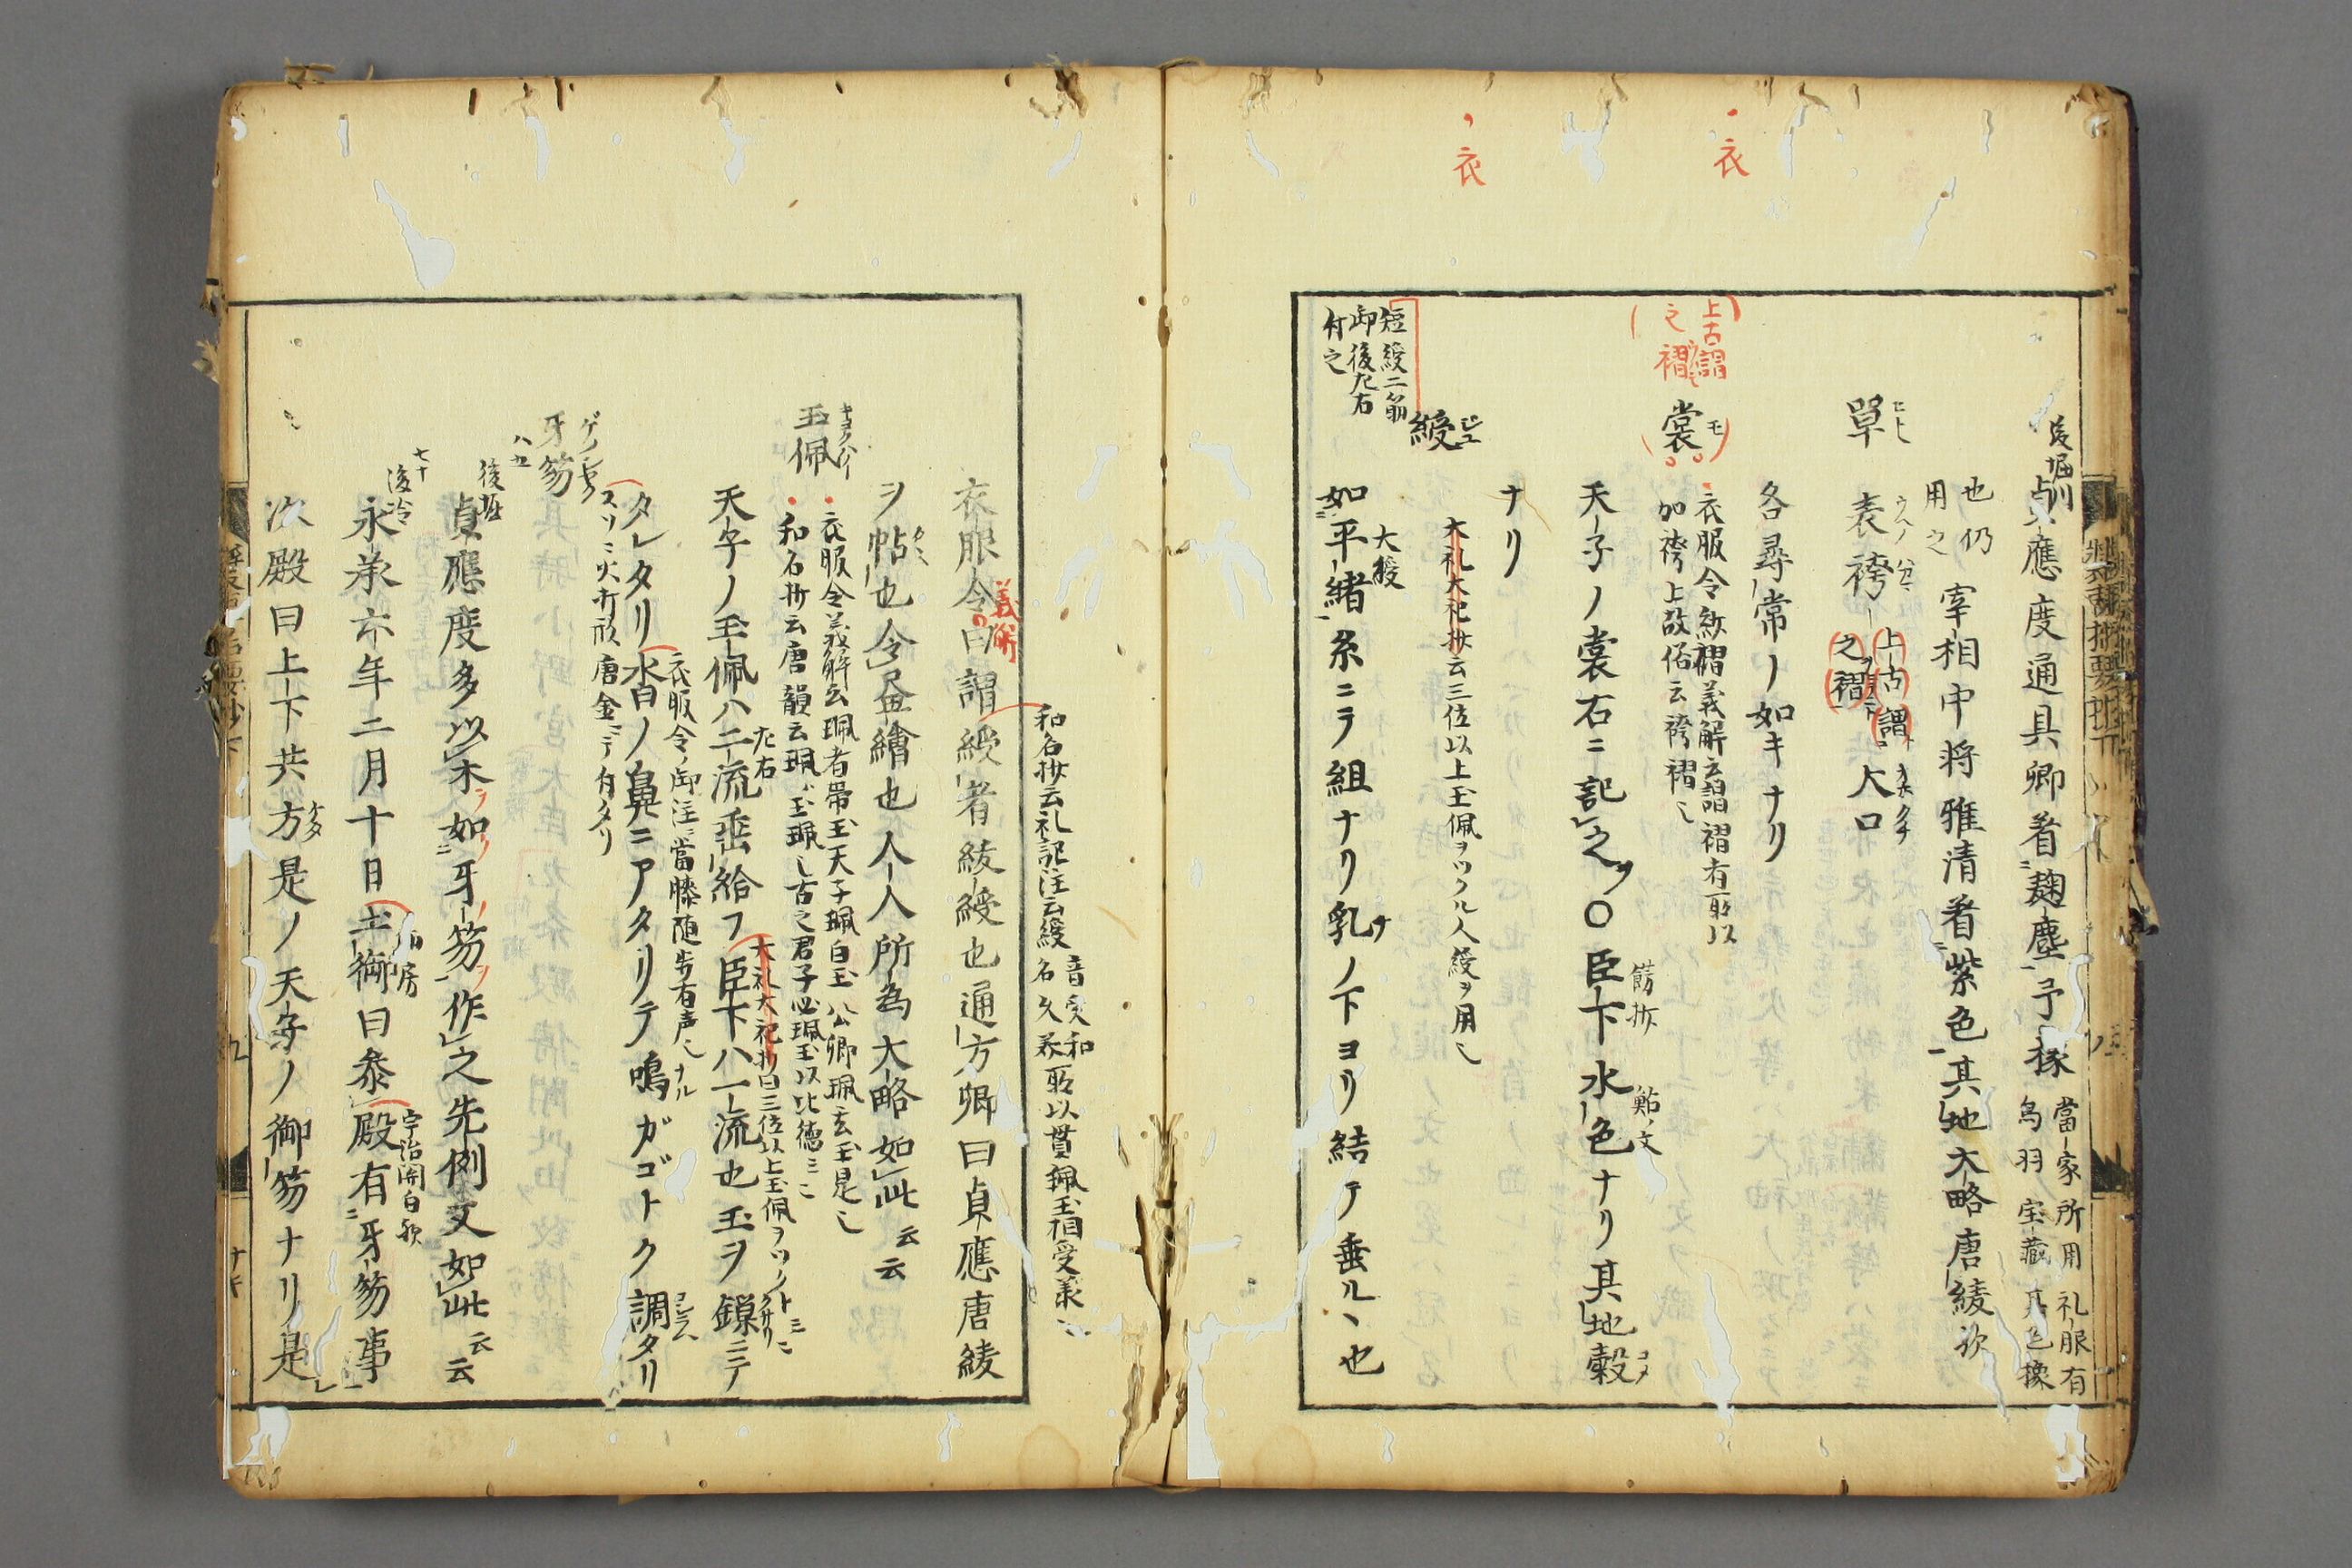 後堀川
貞應度通具卿着麹塵予椽
當家所用礼服有
鳥羽宝藏其色椽
也仍
用之
宰相中将雅清着紫色其地大略唐綾欤
單
表袴
上古謂
之褶
大口
各尋常ノ如キナリ
上古謂
之褶
裳
モ
衣
衣服令紕褶義解云謂褶有所以
加袴上故俗云袴褶也
天子ノ裳右ニ記之〇臣下水色ナリ其地縠
餝抄
鮎ノ文
ナリ
衣
大礼大祀抄云三位以上玉佩ヲツクル人綬ヲ用也
綬
短綬二筋
御後左右
付之
大綬
如平緒糸ニテ組ナリ乳ノ下ヨリ結テ垂ルヽ也
和名抄云礼記注云綬
所以貫珮玉相受義也
衣服令曰謂綬者綾綬也通方卿曰貞應唐綾
ヲ帖也令畳繪也人人所為大略如此云云
玉佩
衣服令義解云珮者帯玉天子珮白玉公卿珮玄玉是也
和名抄云唐韻云珮玉珮也古之君子必珮玉以比徳
天子ノ玉佩ハ二流垂給フ臣下ハ一流也玉ヲ鏁ニテ
左右
大礼大祀抄曰三位以上玉佩ヲツク
衣服令ノ御注ニ當膝随歩有声也
タレタリ沓ノ鼻ニアタリテ鳴ガゴトク調タリ
スソニ火打形唐金ニテ有タリ
牙笏
後堀
貞應度多以木如牙笏作之先例又如此云云
後冷
永承六年二月十日土御曰参殿有牙笏事
宇治関白欤
次殿曰上下共方是ノ天子ノ御笏ナリ是